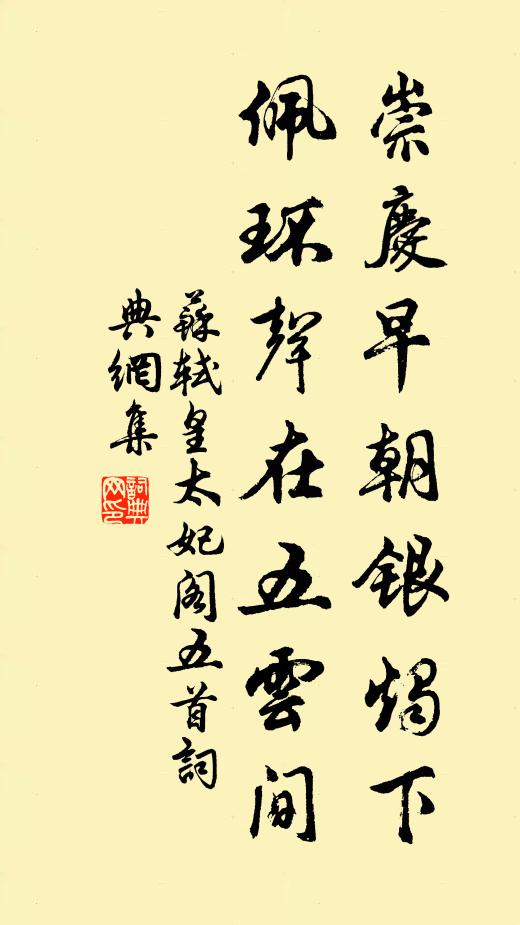 崇慶早朝銀燭下
佩環聲在五雲間
蘇軾皇太妃阁五首詞
典網集
詞典
网印